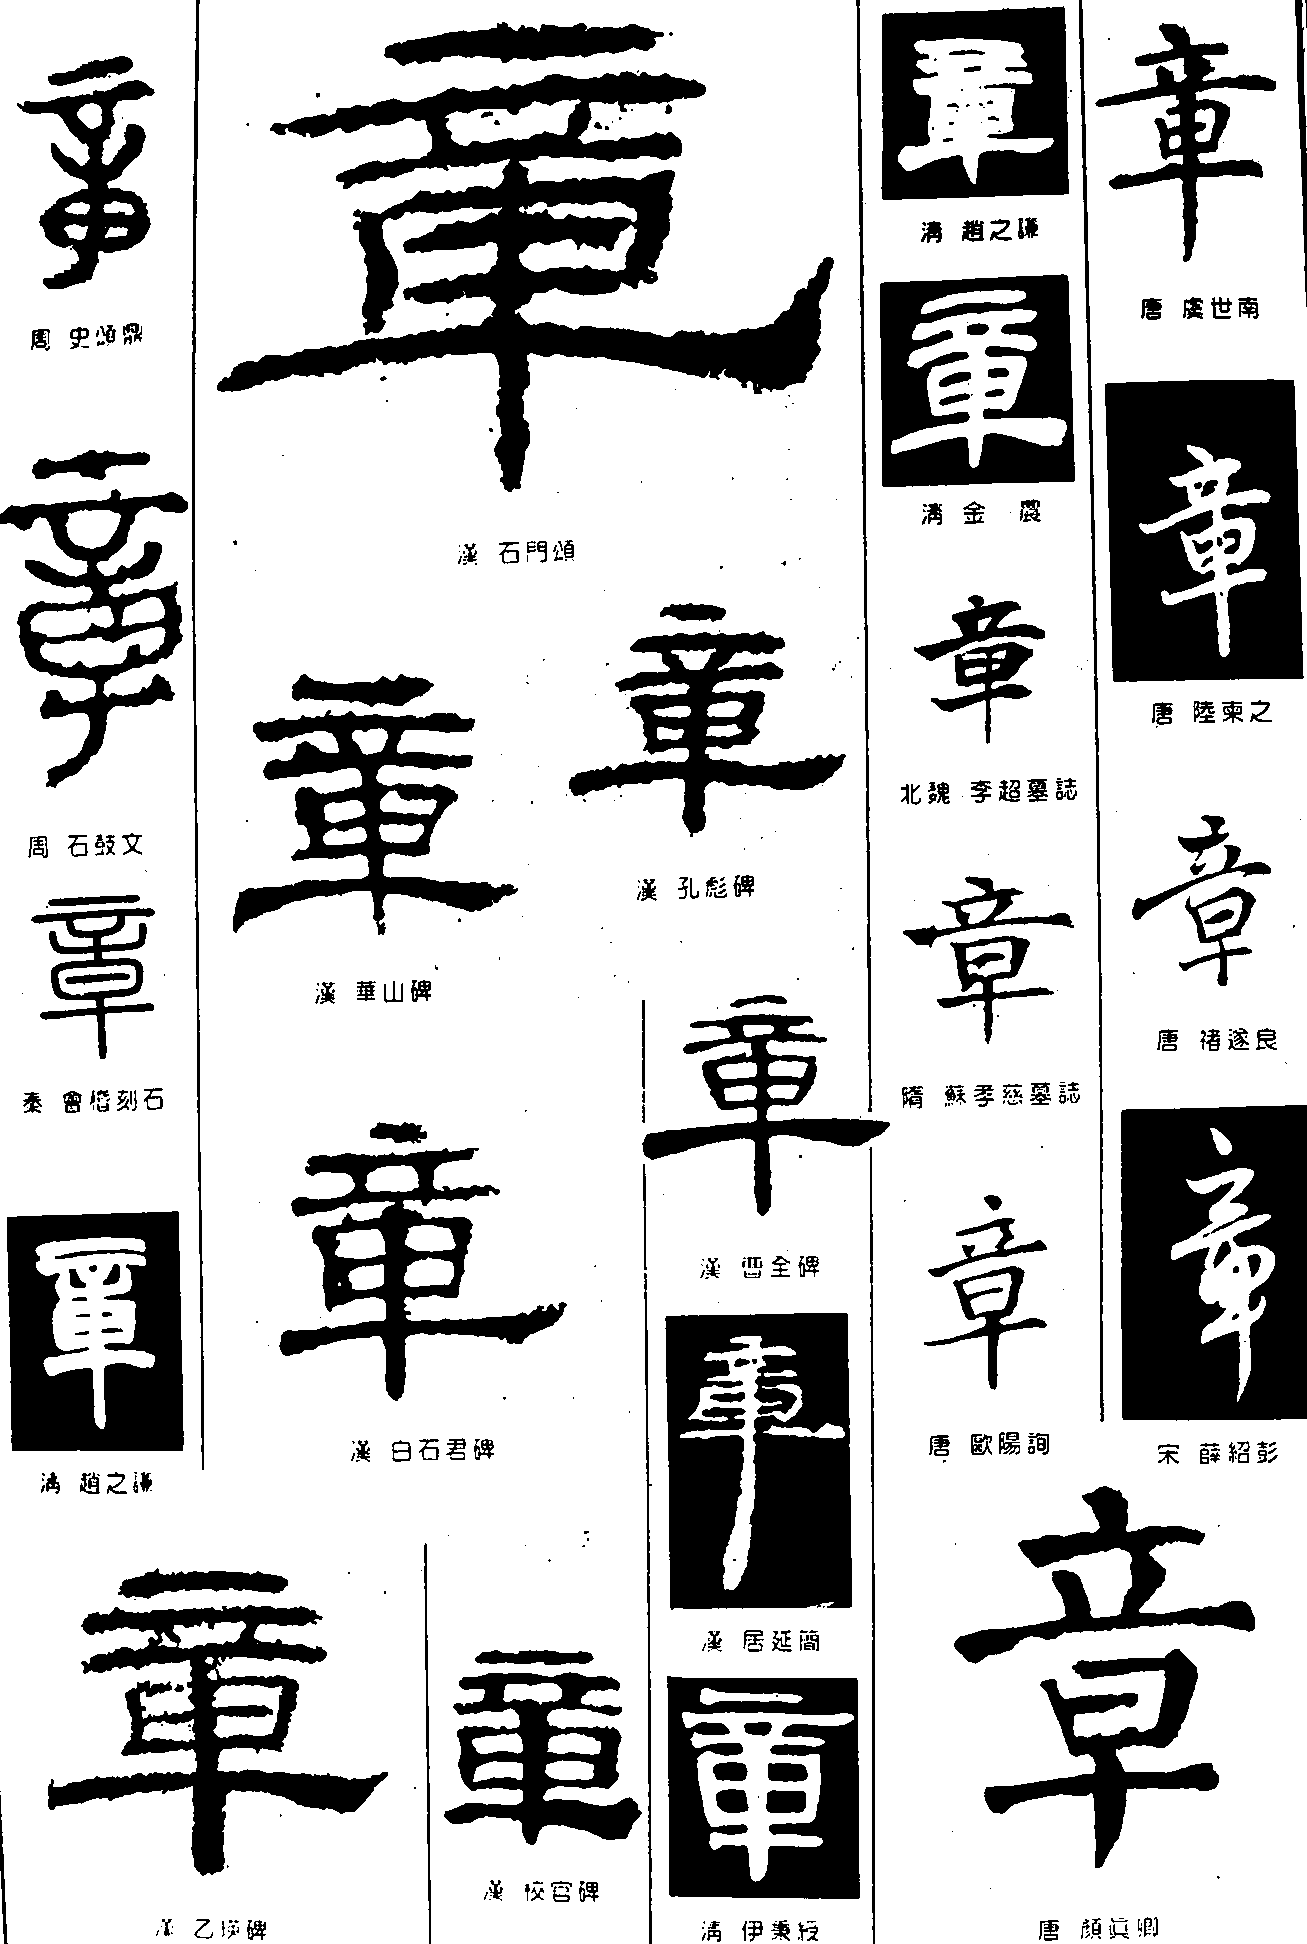 章
唐 虞世南
章
唐 陸柬之
章
唐 褚遂良
章
宋 薛紹彭
章
清 趙之謙
章
清 金 農
章
北魏 李超墓誌
章
隋 蘇孝慈墓誌
章
唐 歐陽詢
章
唐 顏眞卿
章
漢 石門頌
章
漢 孔彪碑
章
漢 華山碑
章
漢 曹全碑
章
漢 白石君碑
章
漢 居延簡
章
清 伊秉綬
章
漢 校官碑
章
漢 乙瑛碑
章
周 史頌鼎
章
周 石鼓文
章
秦 會稽刻石
章
清 趙之謙